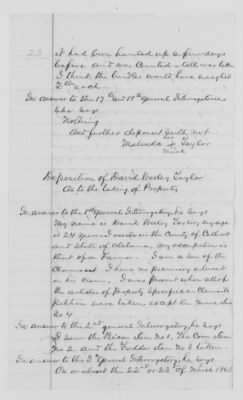 it had been hauled up a few days
before and was counted or tally was taken
I think the bundles would have weighed
2 lbs each.
In answer to the 17th and 18th general Interrogatories
she says
Nothing
And further deponent saith not
Malinda x Taylor
her
mark
Deposition of David Wesley Taylor
As to the taking of Property
In answer to the 1st General Interrogatory, he says
My name is David Wesley Taylor, my age
is 24 years I reside in the County of Colbert
and State of Alabama, my occupation is
that of a Farmer. I am a son of the
Claimant I have no pecuniary interest
in her claim, I was present when all of
the articles of Property specified in Claimants
petition were taken, except the
No 4
In answer to the 2nd general Interrogatory, he says
I saw the Bacon Item No 1, The Corn Item
No 2 and the Fodder Item No 3 taken.
In answer to the 3d General Interrogatory, he says
On or about the 22d or 23d of